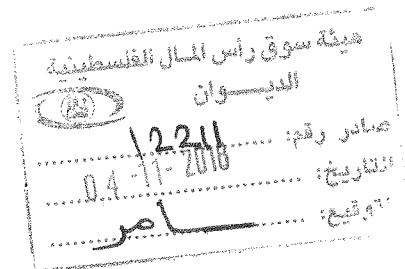 هيئة سوق رأس المال الفلسطينية
الديـــوان
صادر رقم: 12211
التاريخ: 04-11-2018
توقيع: سامر